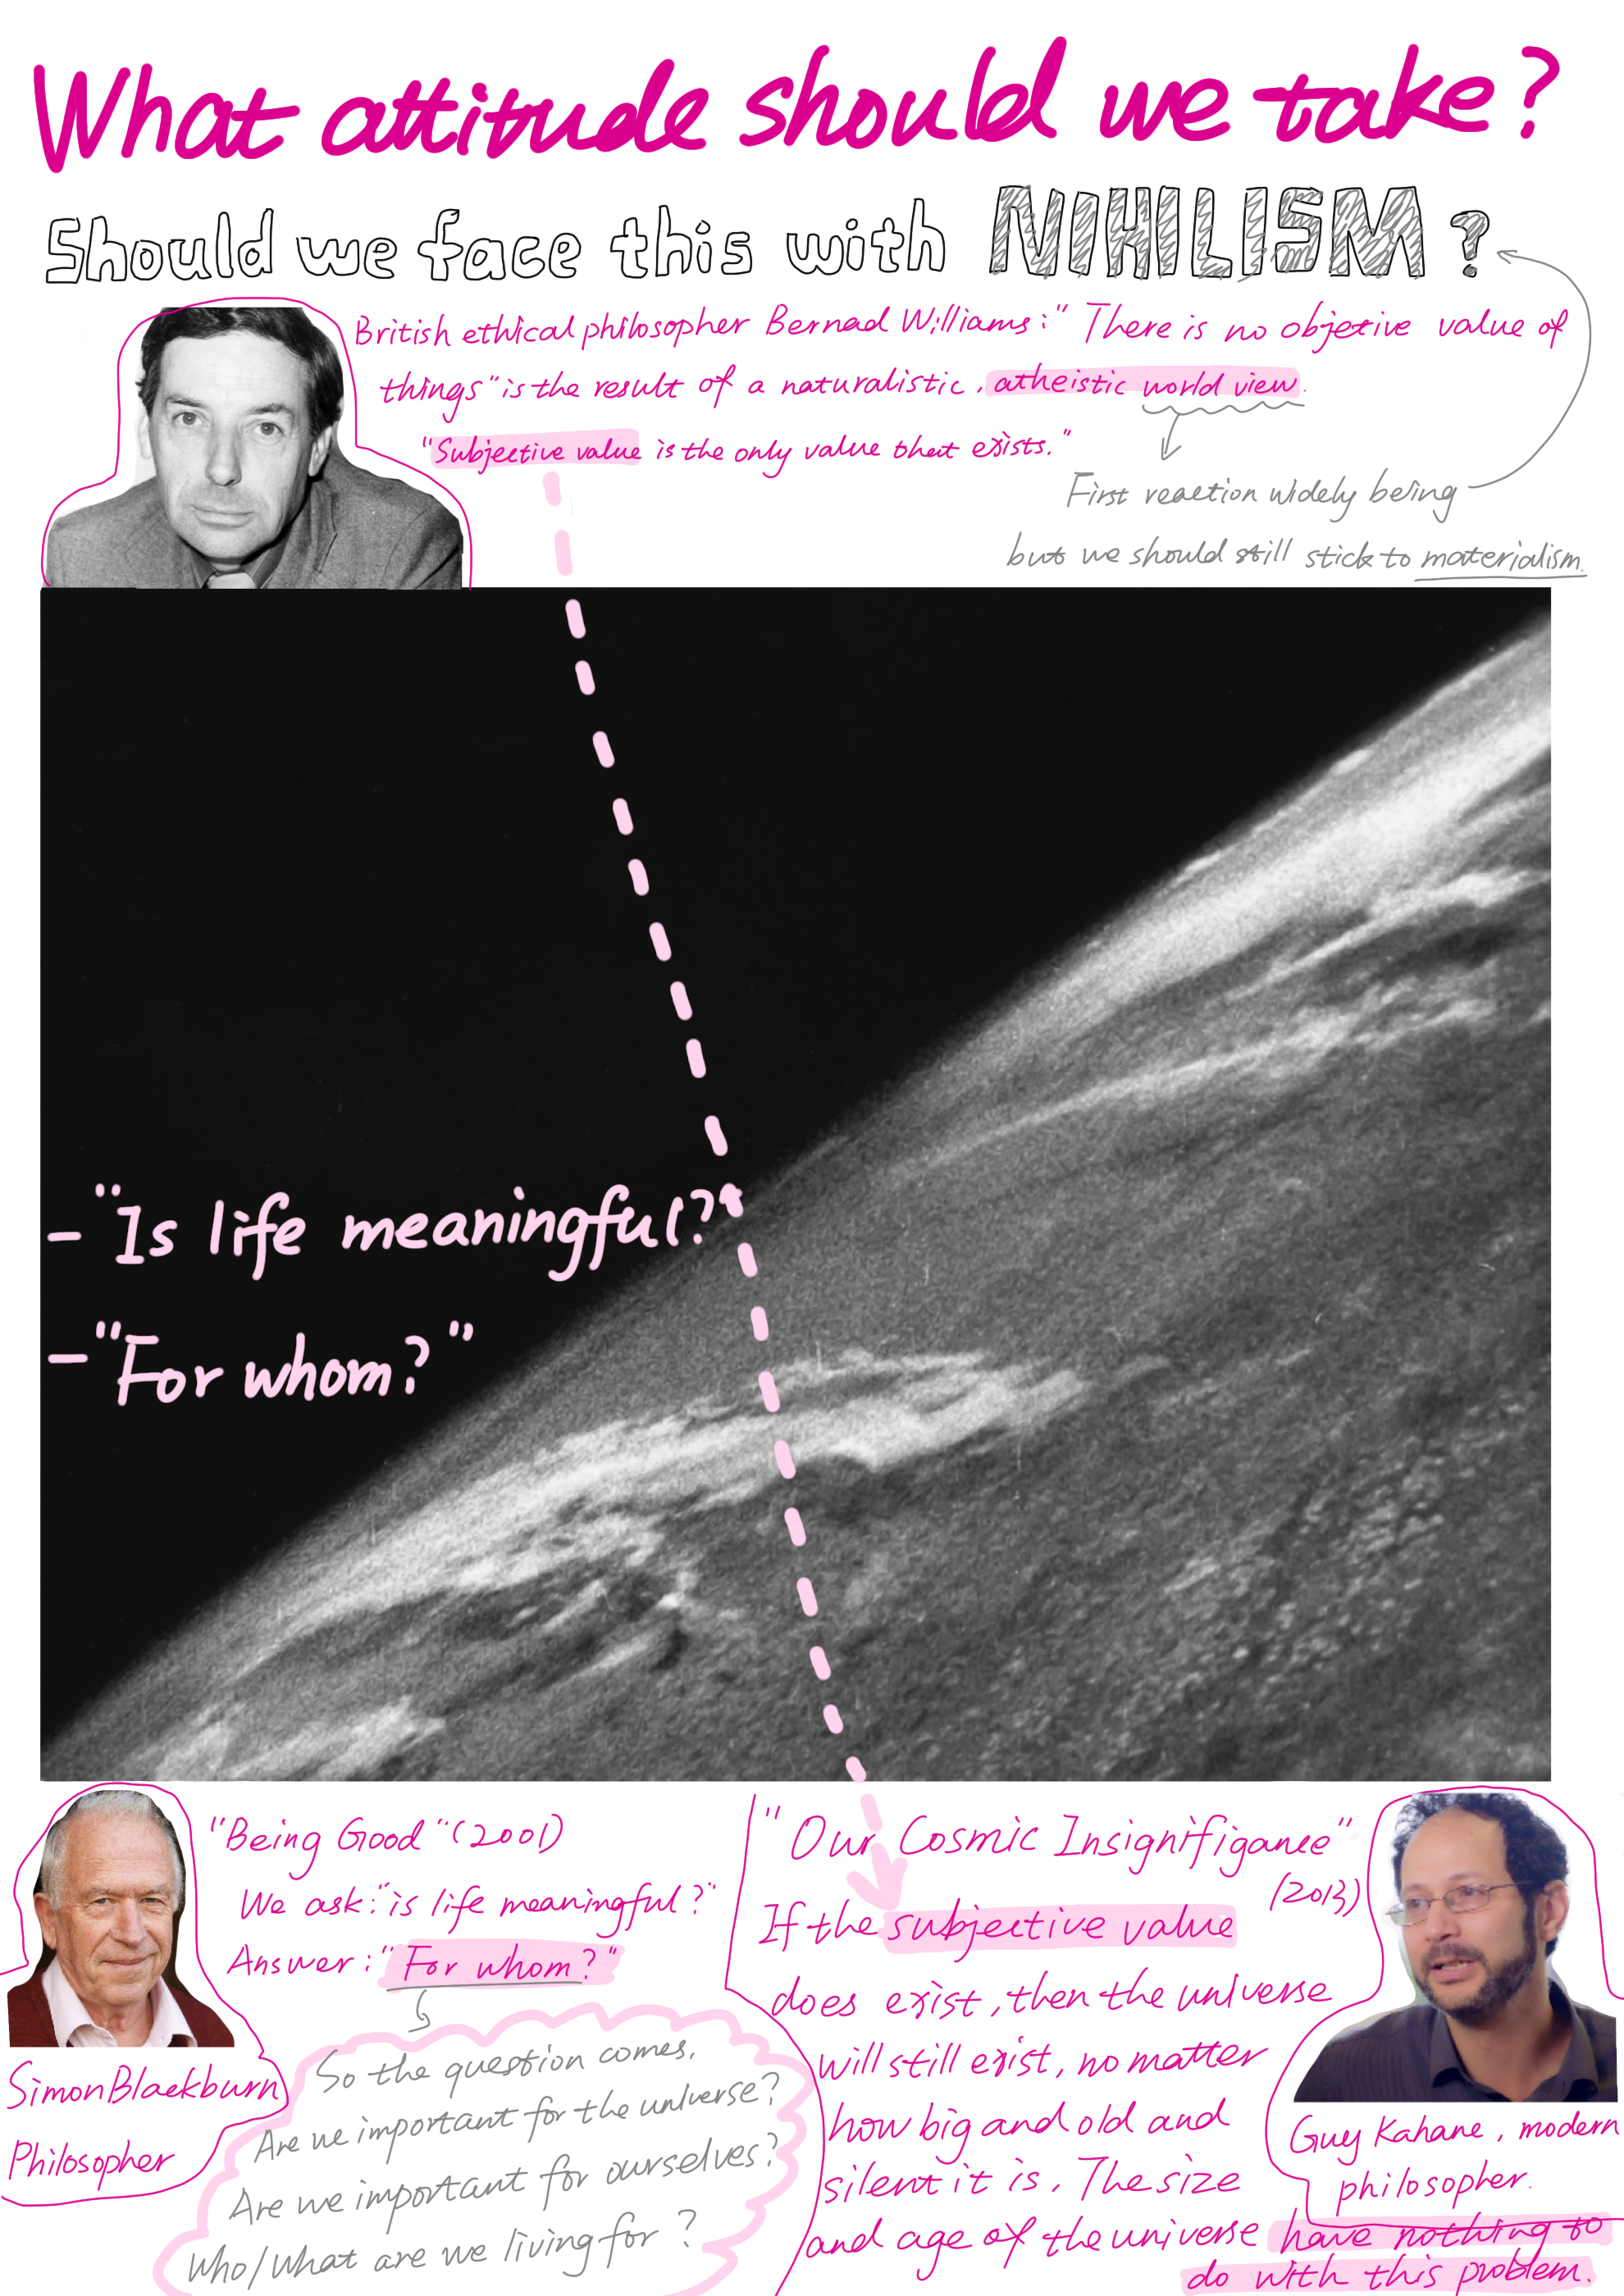 What attitude should we take?
Should we face this with NIHILISM?
British ethical philosopher Bernad Williams: "There is no objetive value of
things" is the result of a naturalistic, atheistic world view.
"Subjective value is the only value that exists."
First reaction widely being
but we should still stick to materialism.
- "Is life meaningful?"
- "For whom?"
"Being Good" (2001)
We ask: "is life meaningful?"
Answer: "For whom?"
So the question comes.
Are we important for the universe?
Are we important for ourselves?
Who/What are we living for?
Simon Blackburn
Philosopher
"Our Cosmic Insignifigance"
(2013)
If the subjective value
does exist, then the universe
will still exist, no matter
how big and old and
silent it is. The size
and age of the universe have nothing to
do with this problem.
Guy Kahane, modern
philosopher.